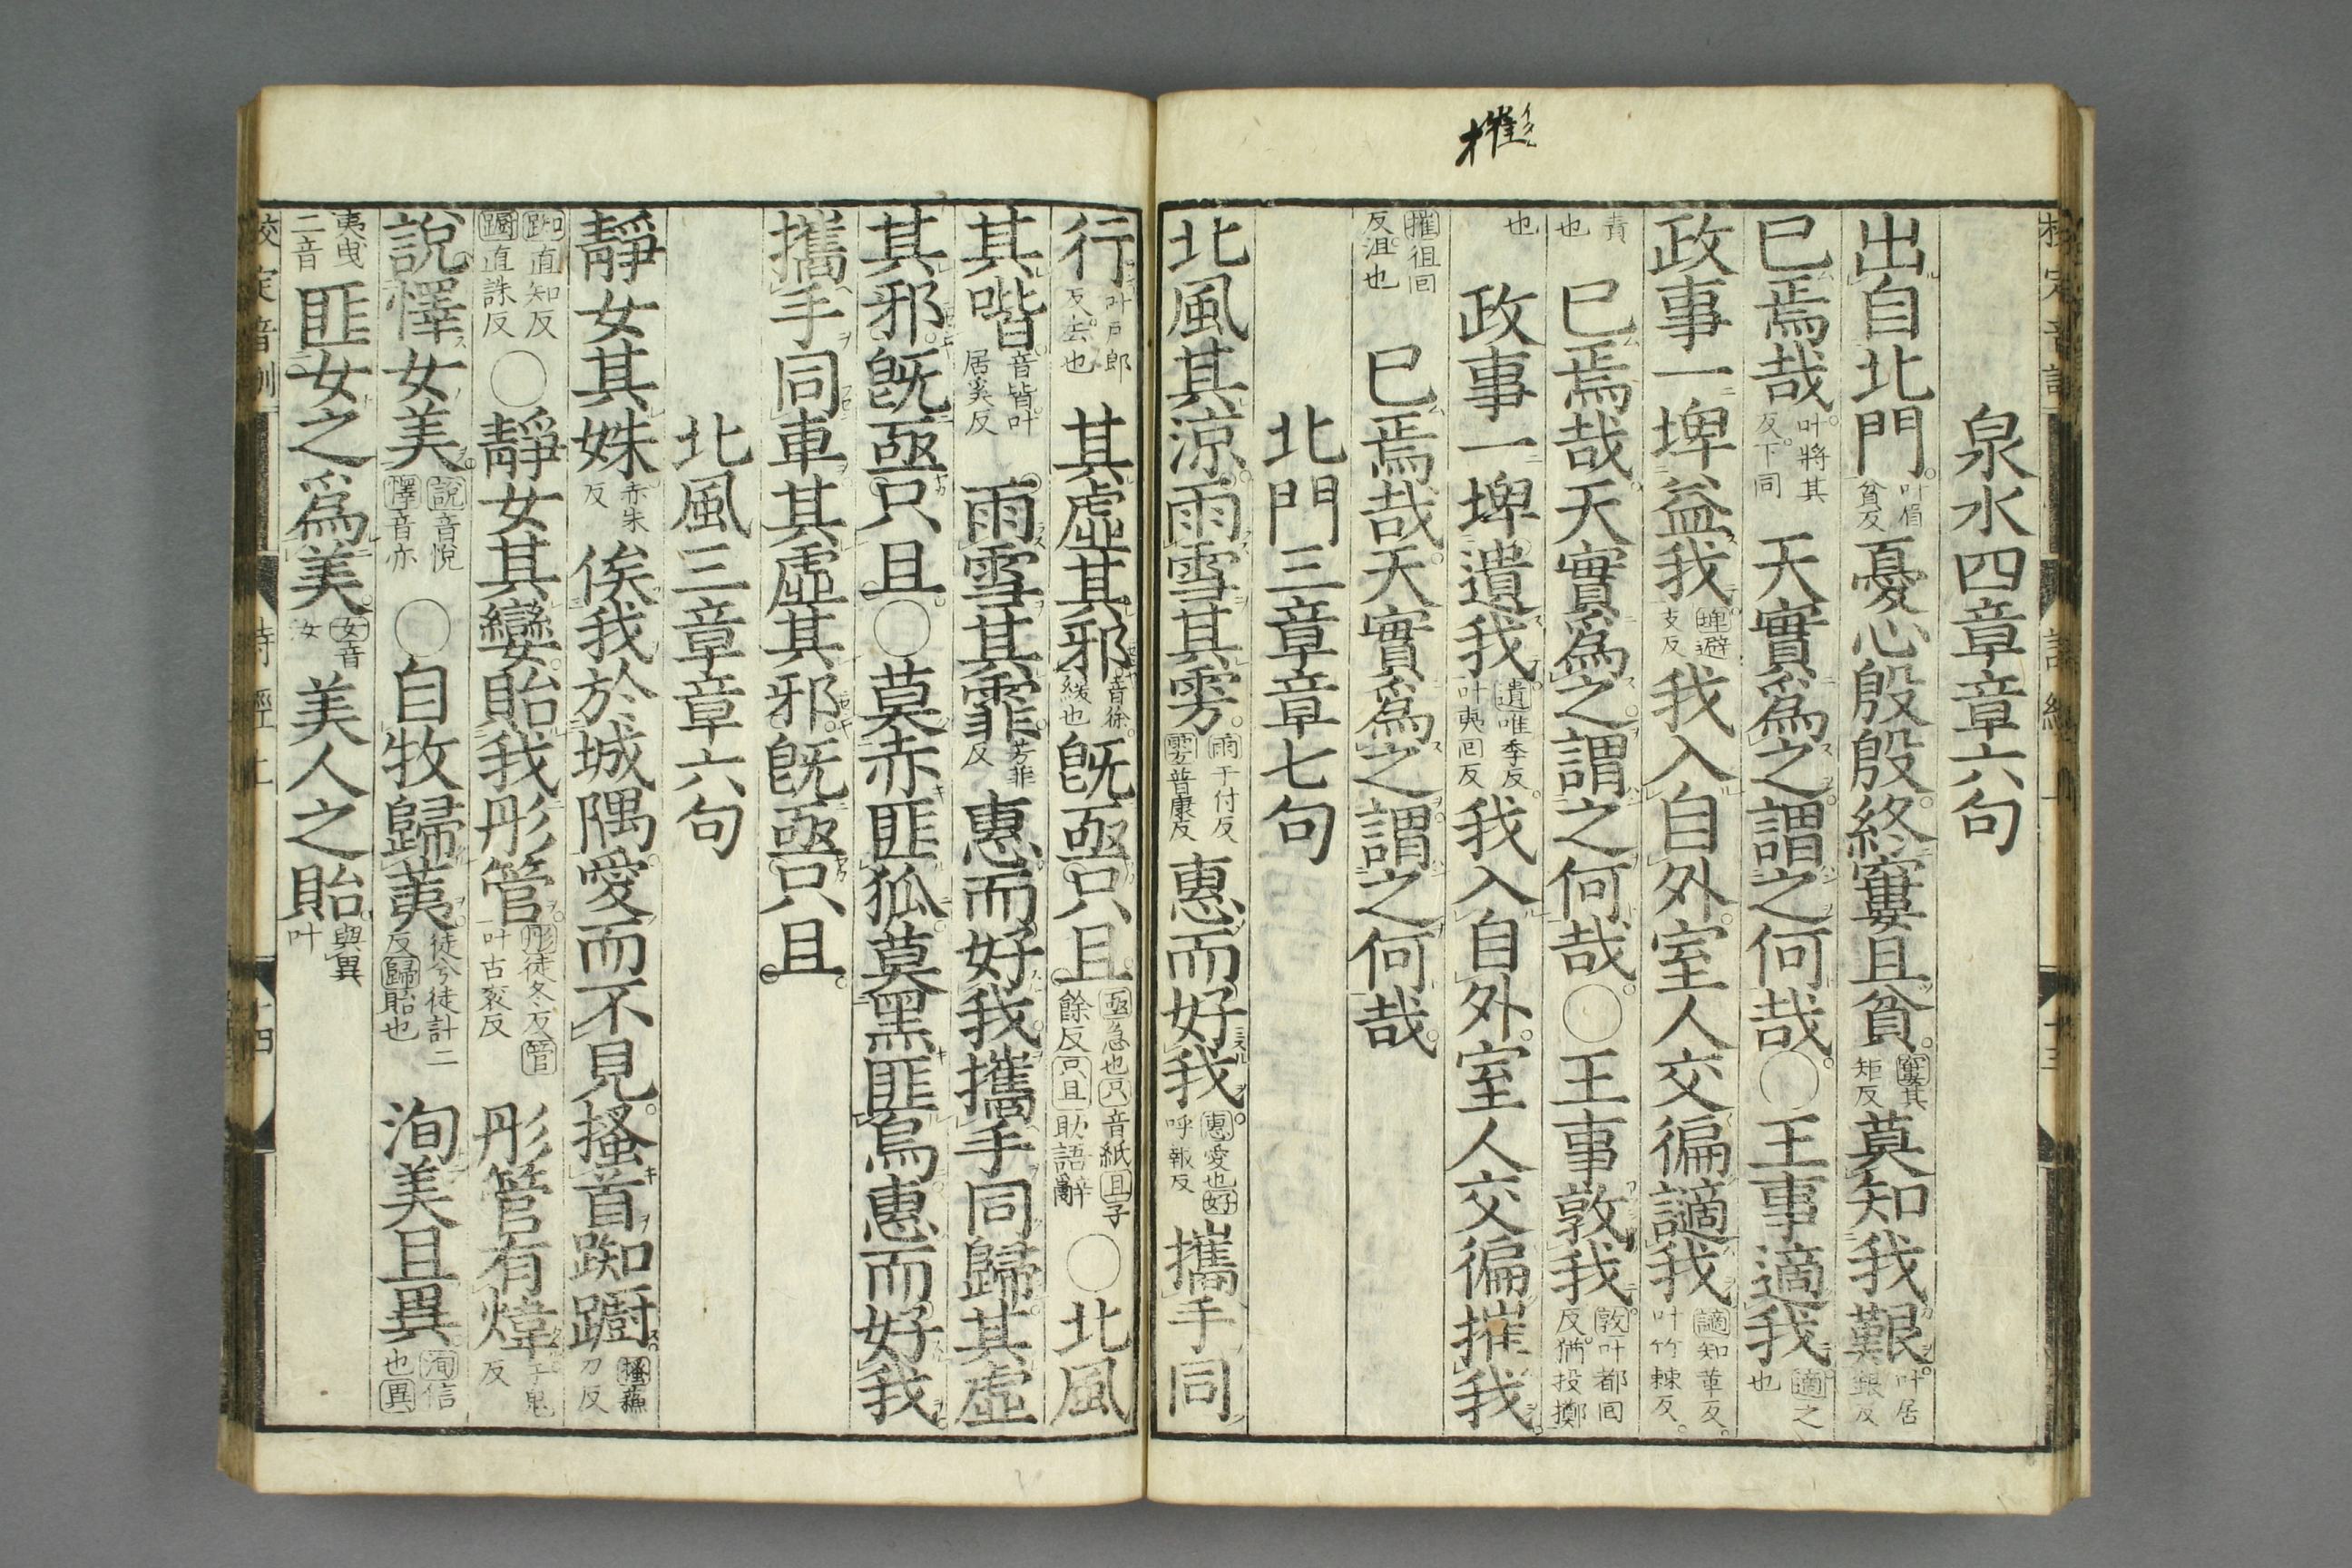 摧
泉水四章章六句
出自北門叶眉貧反憂心殷殷終窶且貧窶其矩反莫知我艱叶居銀反
已焉哉叶將其反下同天實爲之謂之何哉○王事適我適之也
政事一埤益我埤避支反我入自外室人交徧讁我讁知革反叶竹棘反
責也已焉哉天實爲之謂之何哉○王事敦我敦叶都回反猶投擲
也政事一埤遺我遺唯季反叶夷回反我入自外室人交徧摧我
摧徂回反沮也已焉哉天實爲之謂之何哉
北門三章章七句
北風其涼雨雪其雱雨于付反雱普康反惠而好我惠愛也好呼報反攜手同
行叶戶郎反去也其虛其邪音徐緩也旣亟只且亟急也只音紙且子餘反只且助語辭○北風
其喈音皆叶居奚反雨雪其霏芳菲反惠而好我攜手同歸其虛
其邪旣亟只且○莫赤匪狐莫黑匪烏惠而好我
攜手同車其虛其邪旣亟只且
北風三章章六句
靜女其姝赤朱反俟我於城隅愛而不見搔首踟躕搔蘇刀反
踟直知反躕直誅反○靜女其孌貽我彤管彤徒冬反管叶古兖反彤管有煒于鬼反
說懌女美說音悅懌音亦○自牧歸荑徒兮徒計二反歸貽也洵美且異洵信也異
夷曳二音匪女之爲美女音汝美人之貽與異叶
校定音訓 詩經上 十四